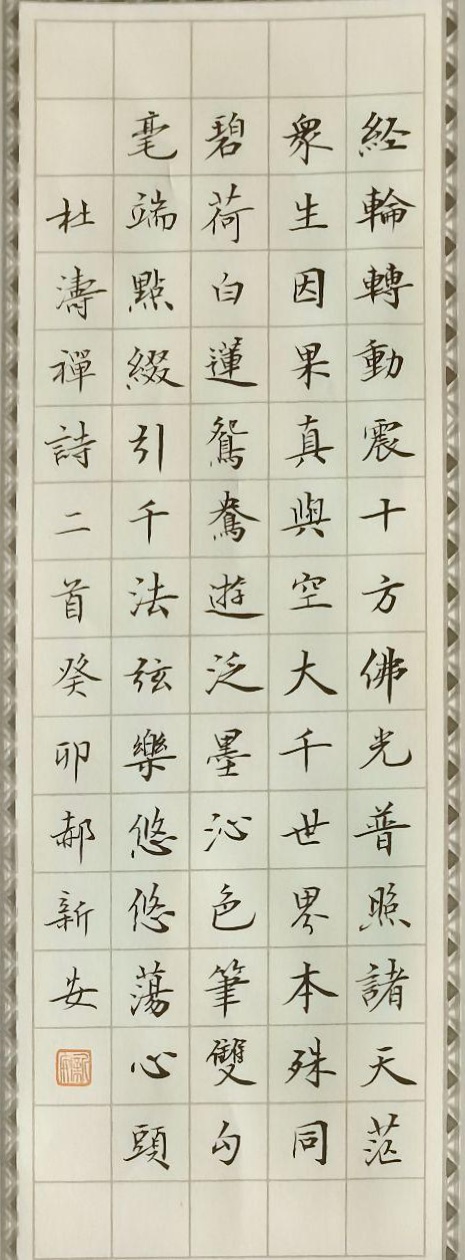 経輪轉動震十方佛光普照諸天茫
衆生因果真與空大千世界本殊同
碧荷白蓮鴛鴦遊泛墨沁色筆雙勾
毫端點綴引千法弦樂悠悠蕩心頭
杜濤禪詩二首癸卯郝新安